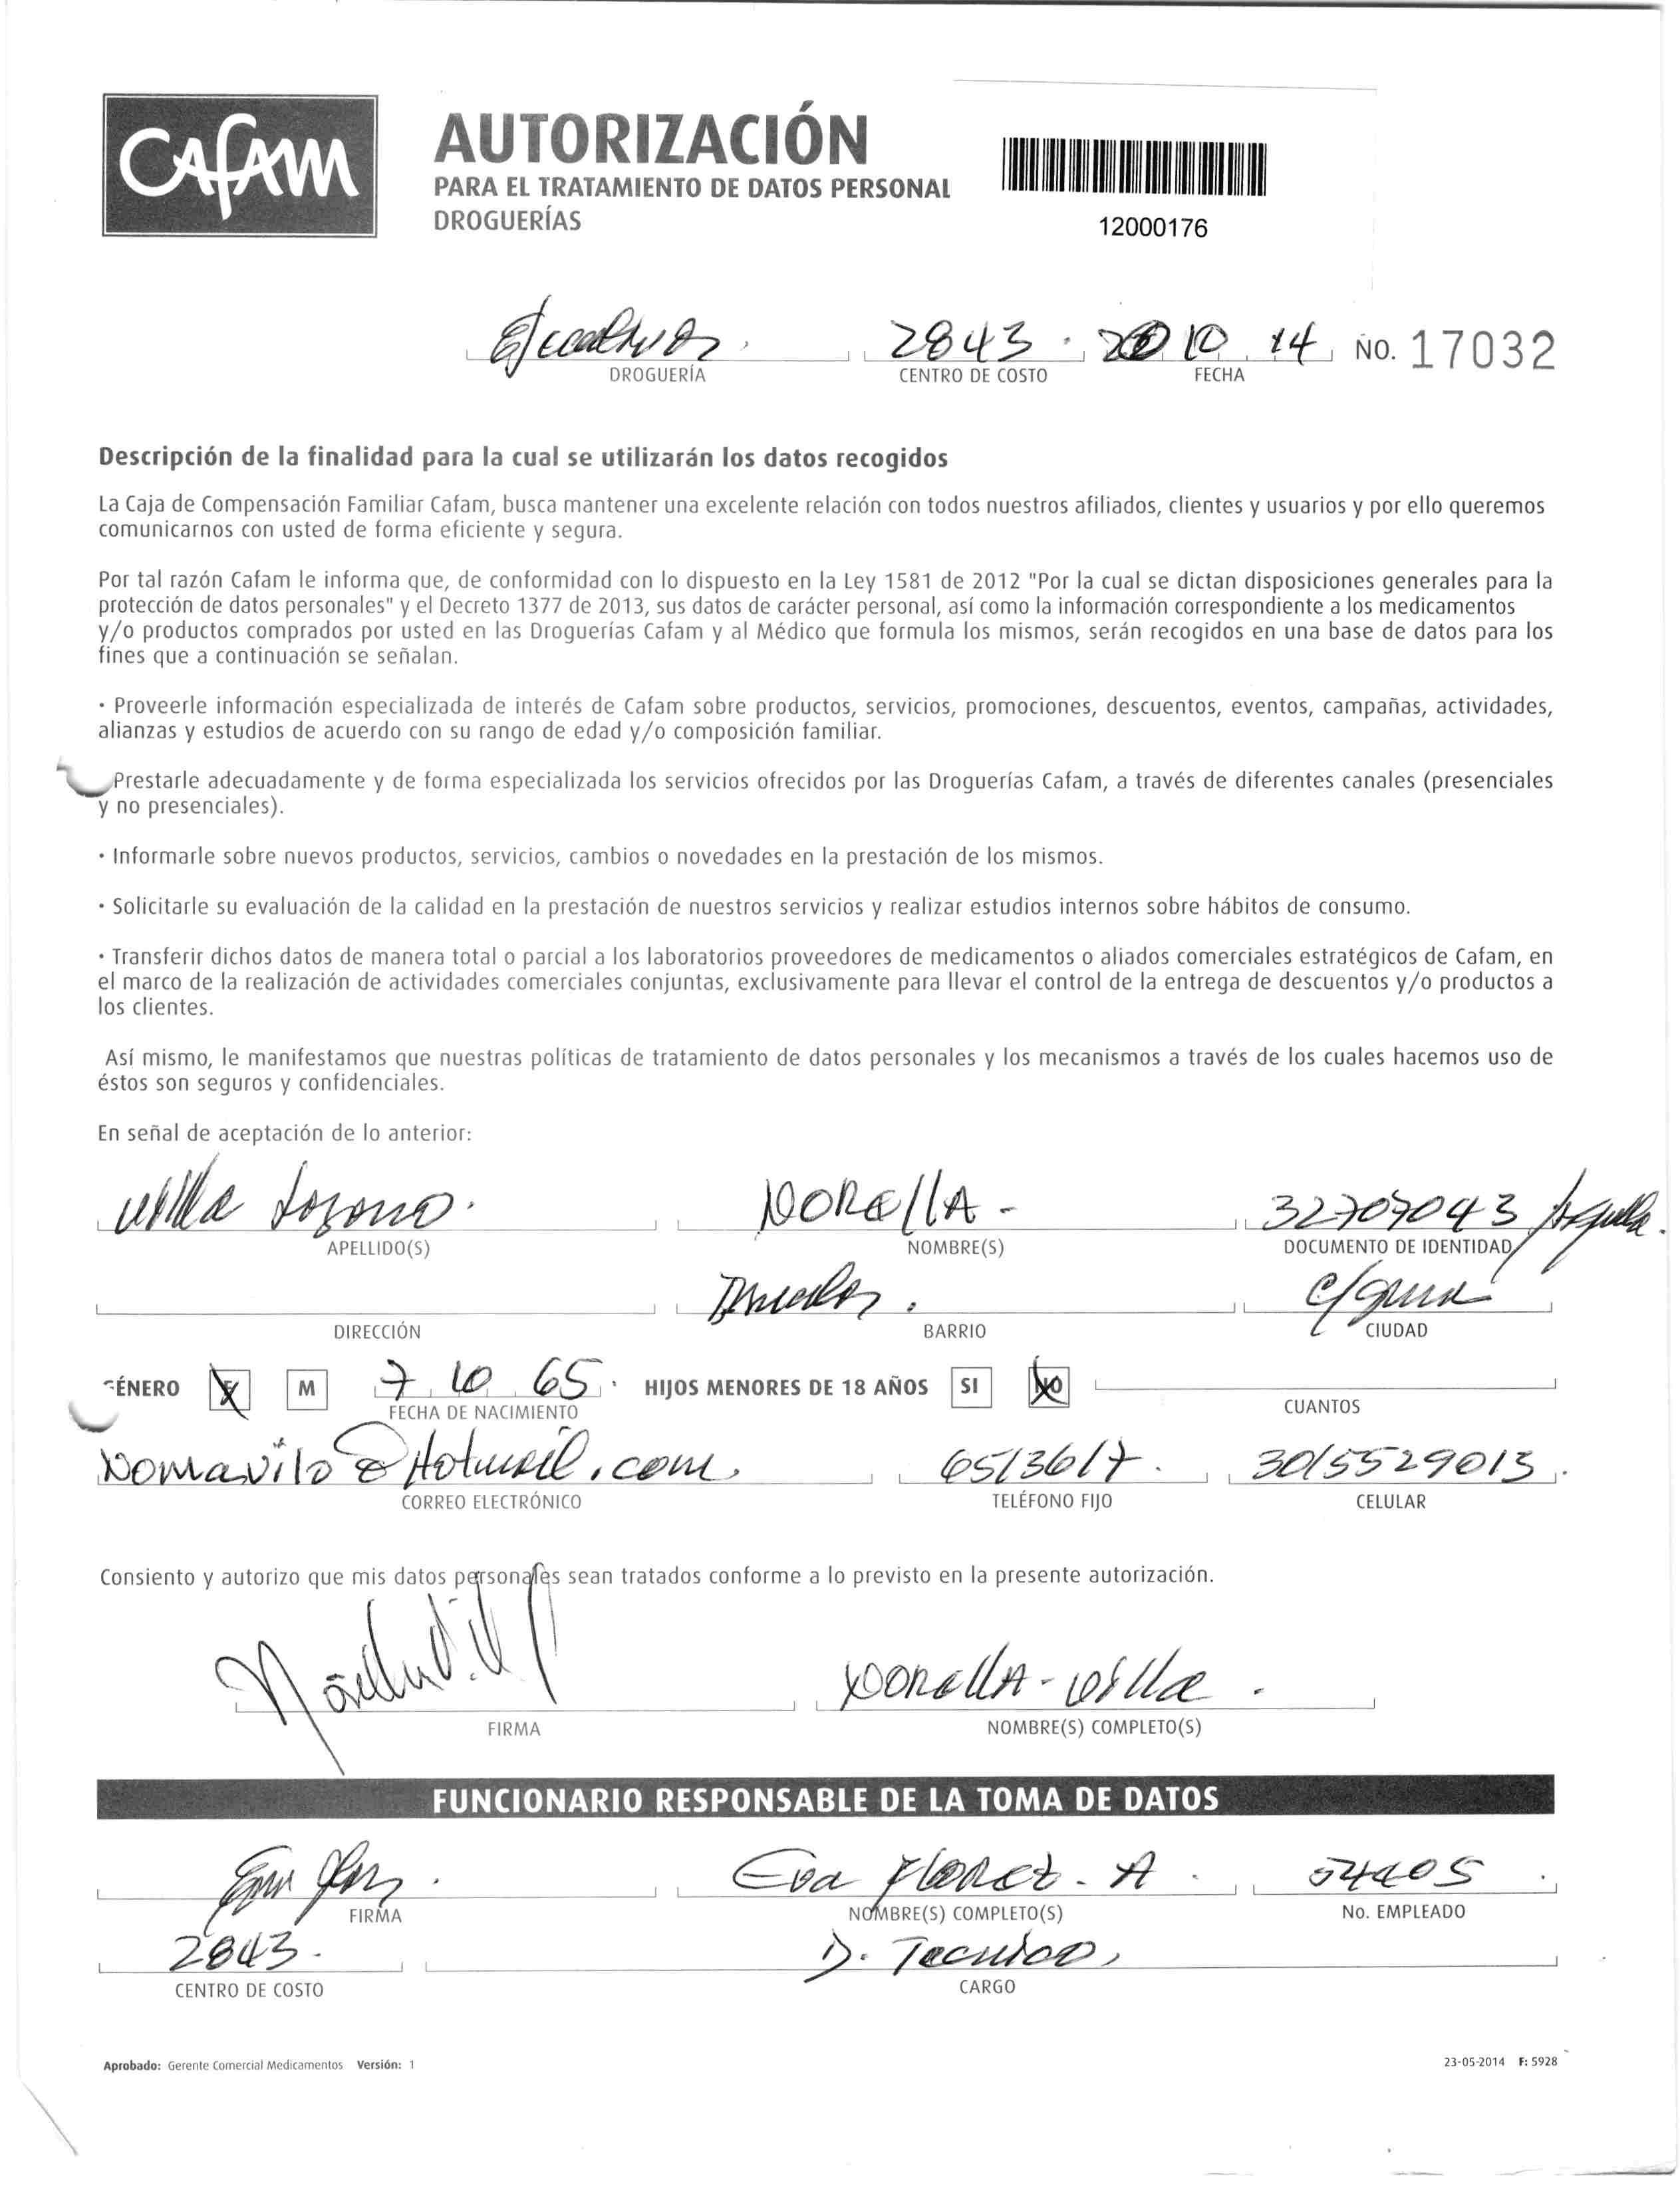 CAFAM
AUTORIZACIÓN
PARA EL TRATAMIENTO DE DATOS PERSONAL
DROGUERÍAS
12000176
2843. 10 14 NO. 17032
DROGUERÍA CENTRO DE COSTO FECHA
Descripción de la finalidad para la cual se utilizarán los datos recogidos
La Caja de Compensación Familiar Cafam, busca mantener una excelente relación con todos nuestros afiliados, clientes y usuarios y por ello queremos
comunicarnos con usted de forma eficiente y segura.
Por tal razón Cafam le informa que, de conformidad con lo dispuesto en la Ley 1581 de 2012 "Por la cual se dictan disposiciones generales para la
protección de datos personales" y el Decreto 1377 de 2013, sus datos de carácter personal, así como la información correspondiente a los medicamentos
y/o productos comprados por usted en las Droguerías Cafam y al Médico que formula los mismos, serán recogidos en una base de datos para los
fines que a continuación se señalan.
· Proveerle información especializada de interés de Cafam sobre productos, servicios, promociones, descuentos, eventos, campañas, actividades,
alianzas y estudios de acuerdo con su rango de edad y/o composición familiar.
Prestarle adecuadamente y de forma especializada los servicios ofrecidos por las Droguerías Cafam, a través de diferentes canales (presenciales
y no presenciales).
· Informarle sobre nuevos productos, servicios, cambios o novedades en la prestación de los mismos.
· Solicitarle su evaluación de la calidad en la prestación de nuestros servicios y realizar estudios internos sobre hábitos de consumo.
· Transferir dichos datos de manera total o parcial a los laboratorios proveedores de medicamentos o aliados comerciales estratégicos de Cafam, en
el marco de la realización de actividades comerciales conjuntas, exclusivamente para llevar el control de la entrega de descuentos y/o productos a
los clientes.
Así mismo, le manifestamos que nuestras políticas de tratamiento de datos personales y los mecanismos a través de los cuales hacemos uso de
éstos son seguros y confidenciales.
En señal de aceptación de lo anterior:
Villa Lozano. NORELLA - 32707043
APELLIDO(S) NOMBRE(S) DOCUMENTO DE IDENTIDAD
C/gena
DIRECCIÓN BARRIO CIUDAD
GÉNERO F M 7 10 65 HIJOS MENORES DE 18 AÑOS SI NO
FECHA DE NACIMIENTO CUANTOS
Nomavilo@Hotmail.com. 6513617. 3015529013.
CORREO ELECTRÓNICO TELÉFONO FIJO CELULAR
Consiento y autorizo que mis datos personales sean tratados conforme a lo previsto en la presente autorización.
NORELLA - Villa.
FIRMA NOMBRE(S) COMPLETO(S)
FUNCIONARIO RESPONSABLE DE LA TOMA DE DATOS
Eva Florez. A.
FIRMA NOMBRE(S) COMPLETO(S) No. EMPLEADO
2843. D. Tecnico.
CENTRO DE COSTO CARGO
Aprobado: Gerente Comercial Medicamentos Versión: 1 23-05-2014 F: 5928